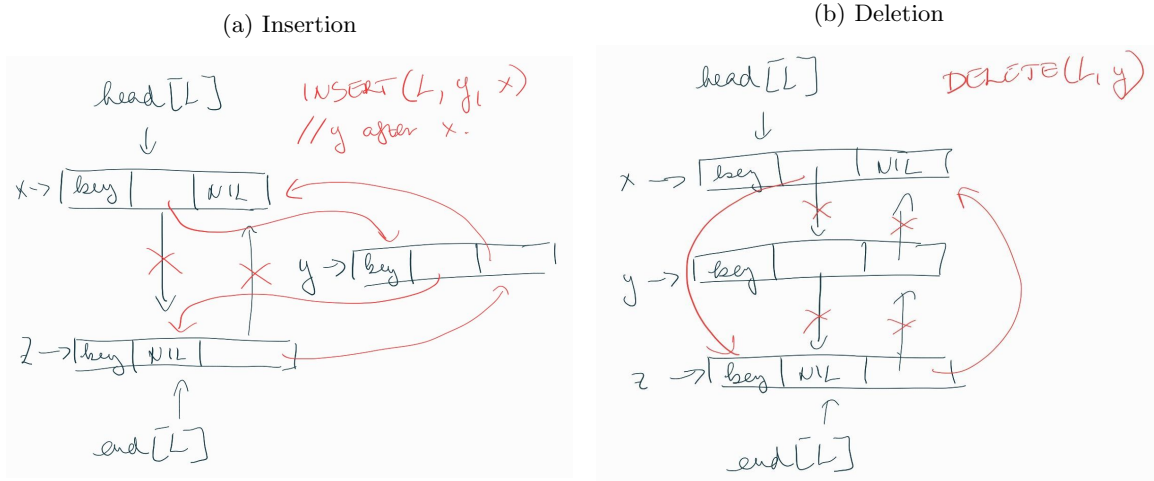 (a) Insertion
head[L]
INSERT(L, y, x)
//y after x.
x→ key NIL
y→ key
z→ key NIL
end[L]
(b) Deletion
head[L]
DELETE(L, y)
x → key NIL
y → key
z → key NIL
end[L]